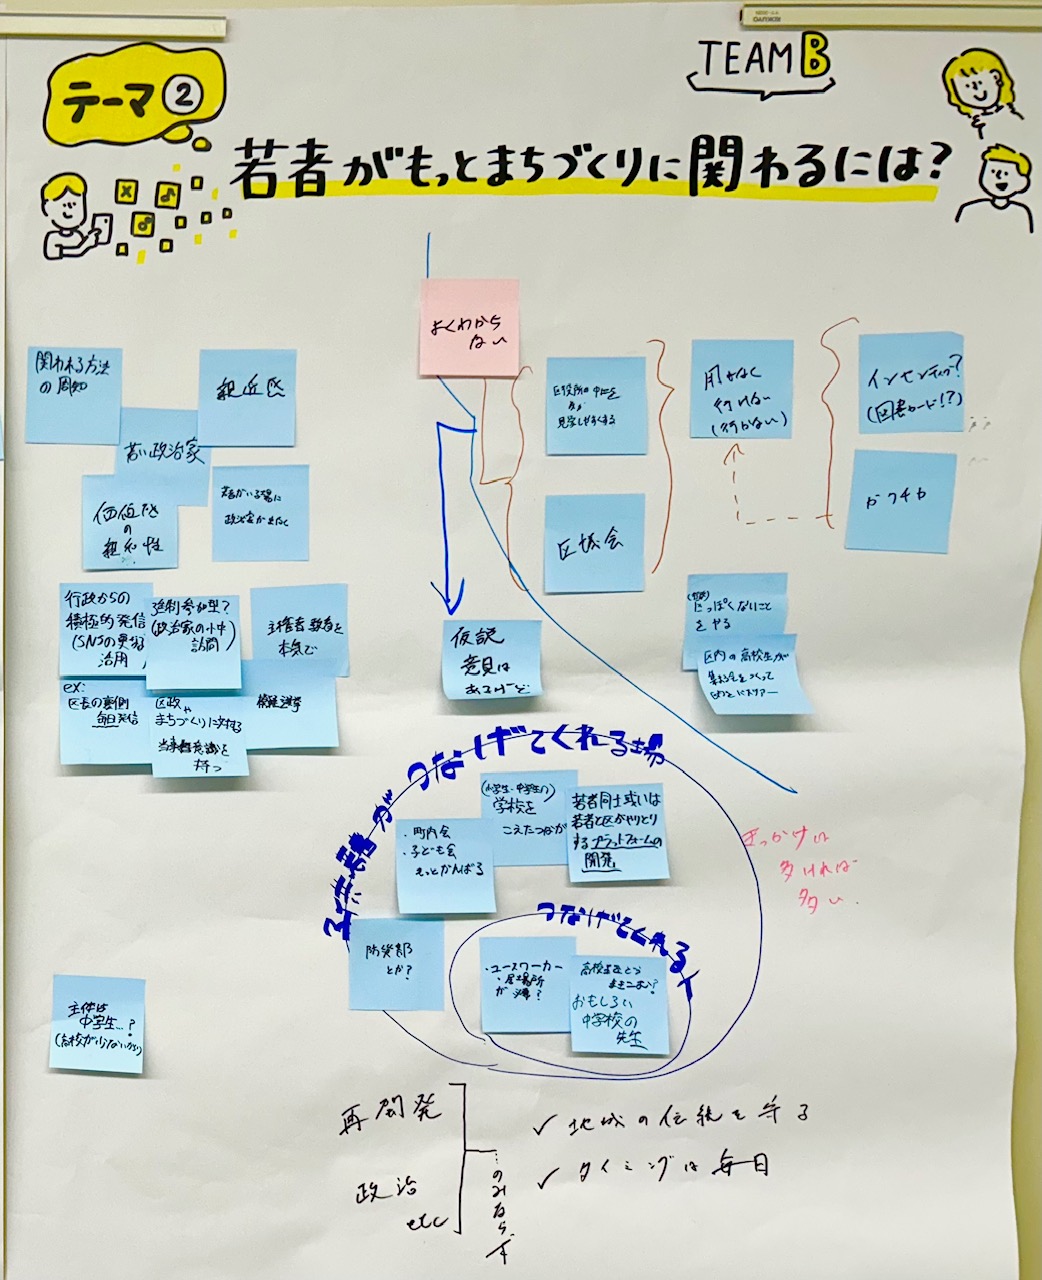 テーマ②
TEAM B
若者がもっとまちづくりに関わるには?
よくわから
ない
関われる方法
の周知
親近感
若い政治家
価値感
の
親和性
若者がいる場に
政治家が
行政からの
積極的発信
(SNSの更なる
活用
強制参加型?
(政治家の小中
訪問)
主権者教育を
本気で
ex:
区長の裏側
毎日発信
区政や
まちづくりに対する
当事者意識を
持つ
模擬選挙
区役所の中を
見学しやすくする
区議会
用がなく
行けない
(行かない)
インセンティブ?
(図書カード!?)
ガクチカ
仮説
意見は
あるけど
っぽくないこと
をやる
区内の高校生が
つながげてくれる場
(小学生・中学生の)
学校を
こえたつながり
・町内会
・子ども会
もっとがんばる
若者同士或いは
若者と区がやりとり
するプラットフォームの
開発
防災部
とか?
つなげてくれる人
・ユースワーカー
・居場所
が必要?
おもしろい
中学校の
先生
きっかけは
多ければ
多い
主体は
中学生…?
(高校が少ないから)
再開発
政治
etc
のみならず
✓ 地域の伝統を守る
✓ タイミングは毎日